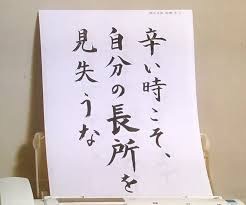 辛い時こそ、
自分の長所を
見失うな